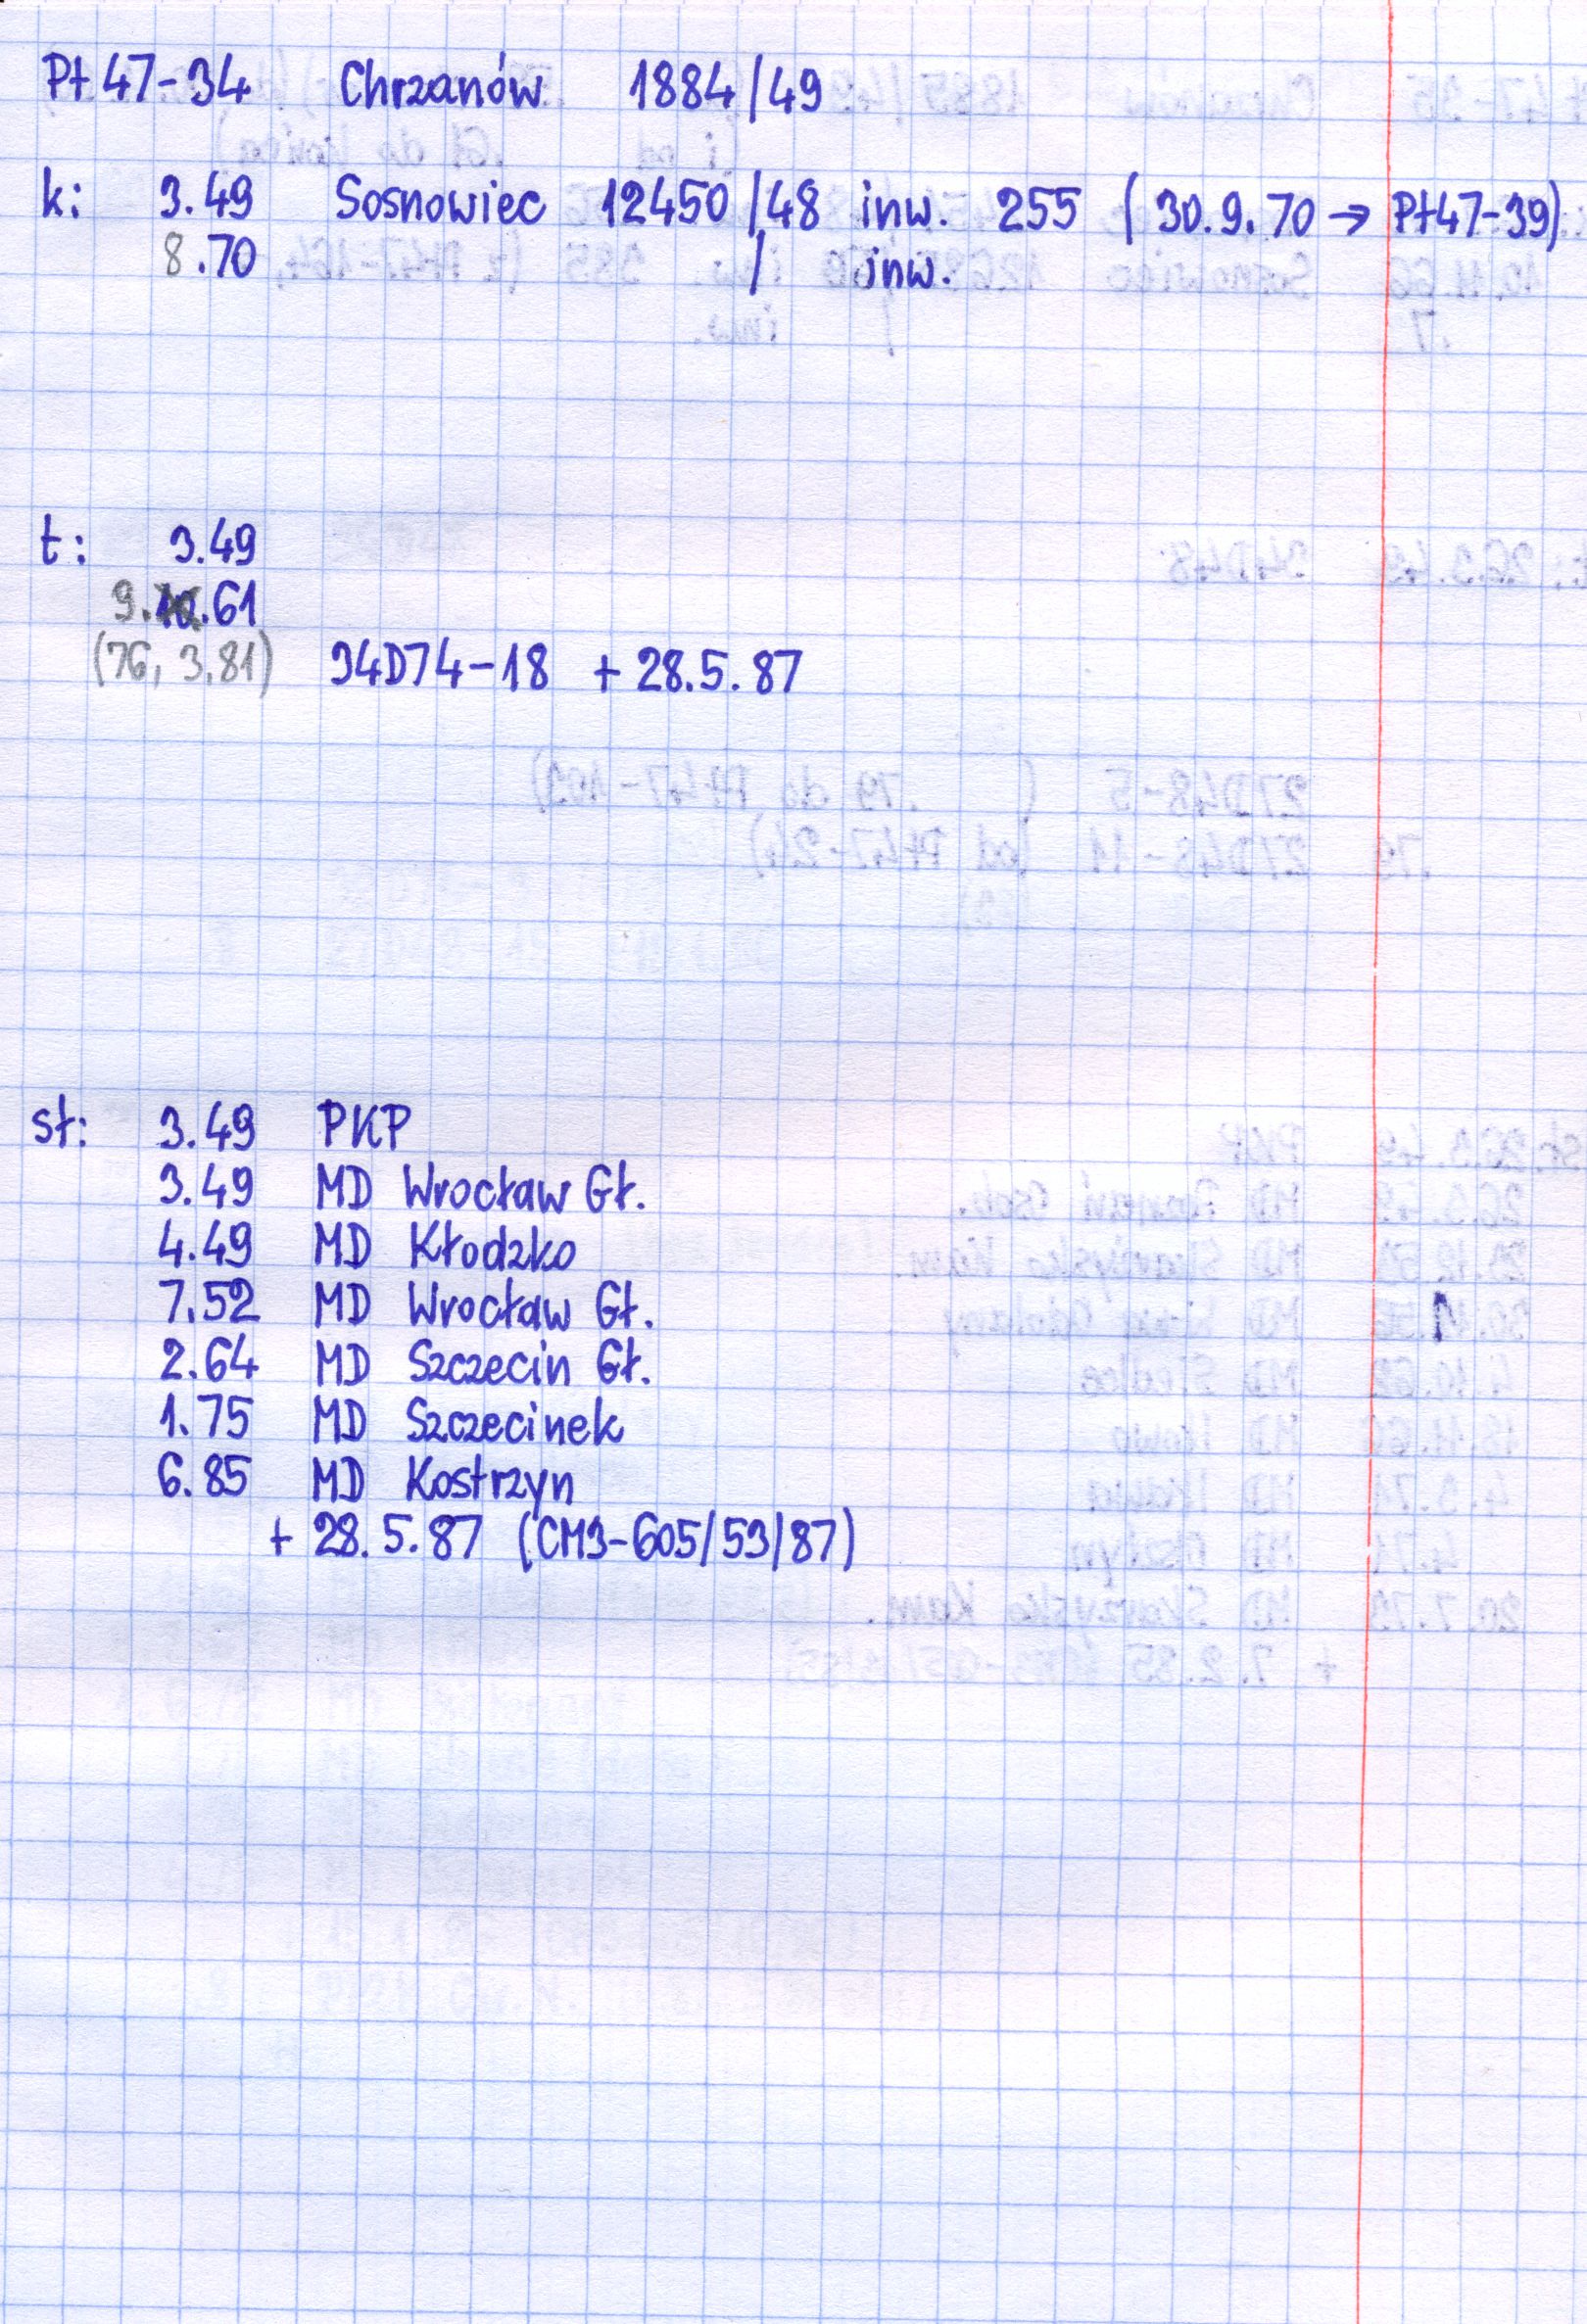 Pt47-34 Chrzanów 1884/49
k: 3.49 Sosnowiec 12450/48 inw. 255 (30.9.70 → Pt47-39)
8.70 / inw.
t: 3.49
9.61
(76, 3.81) 34D74-18 + 28.5.87
st: 3.49 PKP
3.49 MD Wrocław Gł.
4.49 MD Kłodzko
7.52 MD Wrocław Gł.
2.64 MD Szczecin Gł.
1.75 MD Szczecinek
6.85 MD Kostrzyn
+ 28.5.87 (CM3-605/53/87)